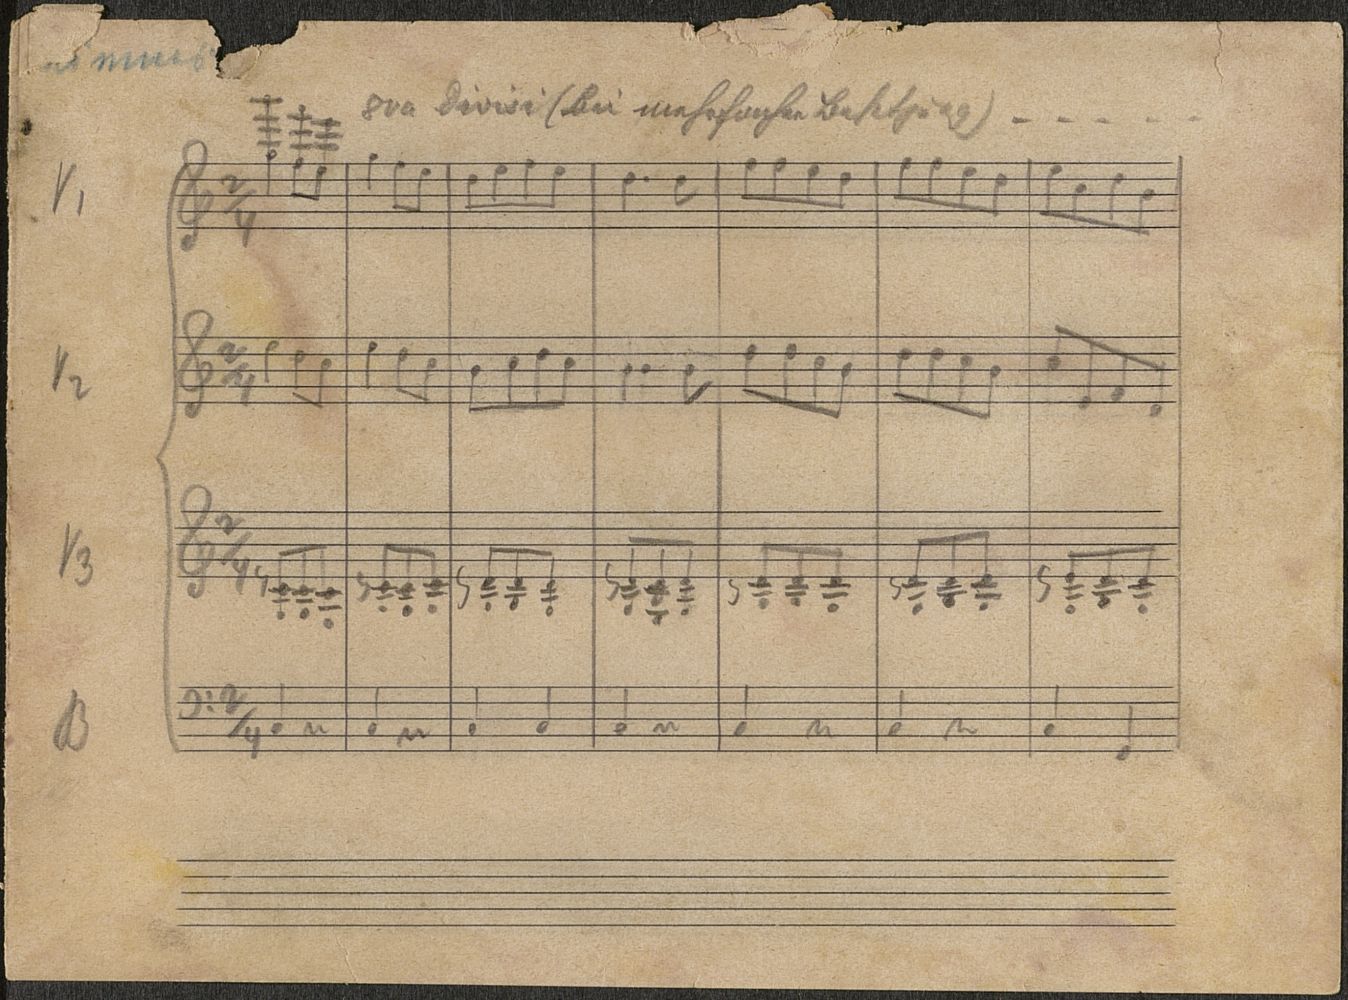 8va divisi (bei mehrfacher Besetzung) - - - - - -
V1
2/4
V2
2/4
V3
2/4
B
2/4